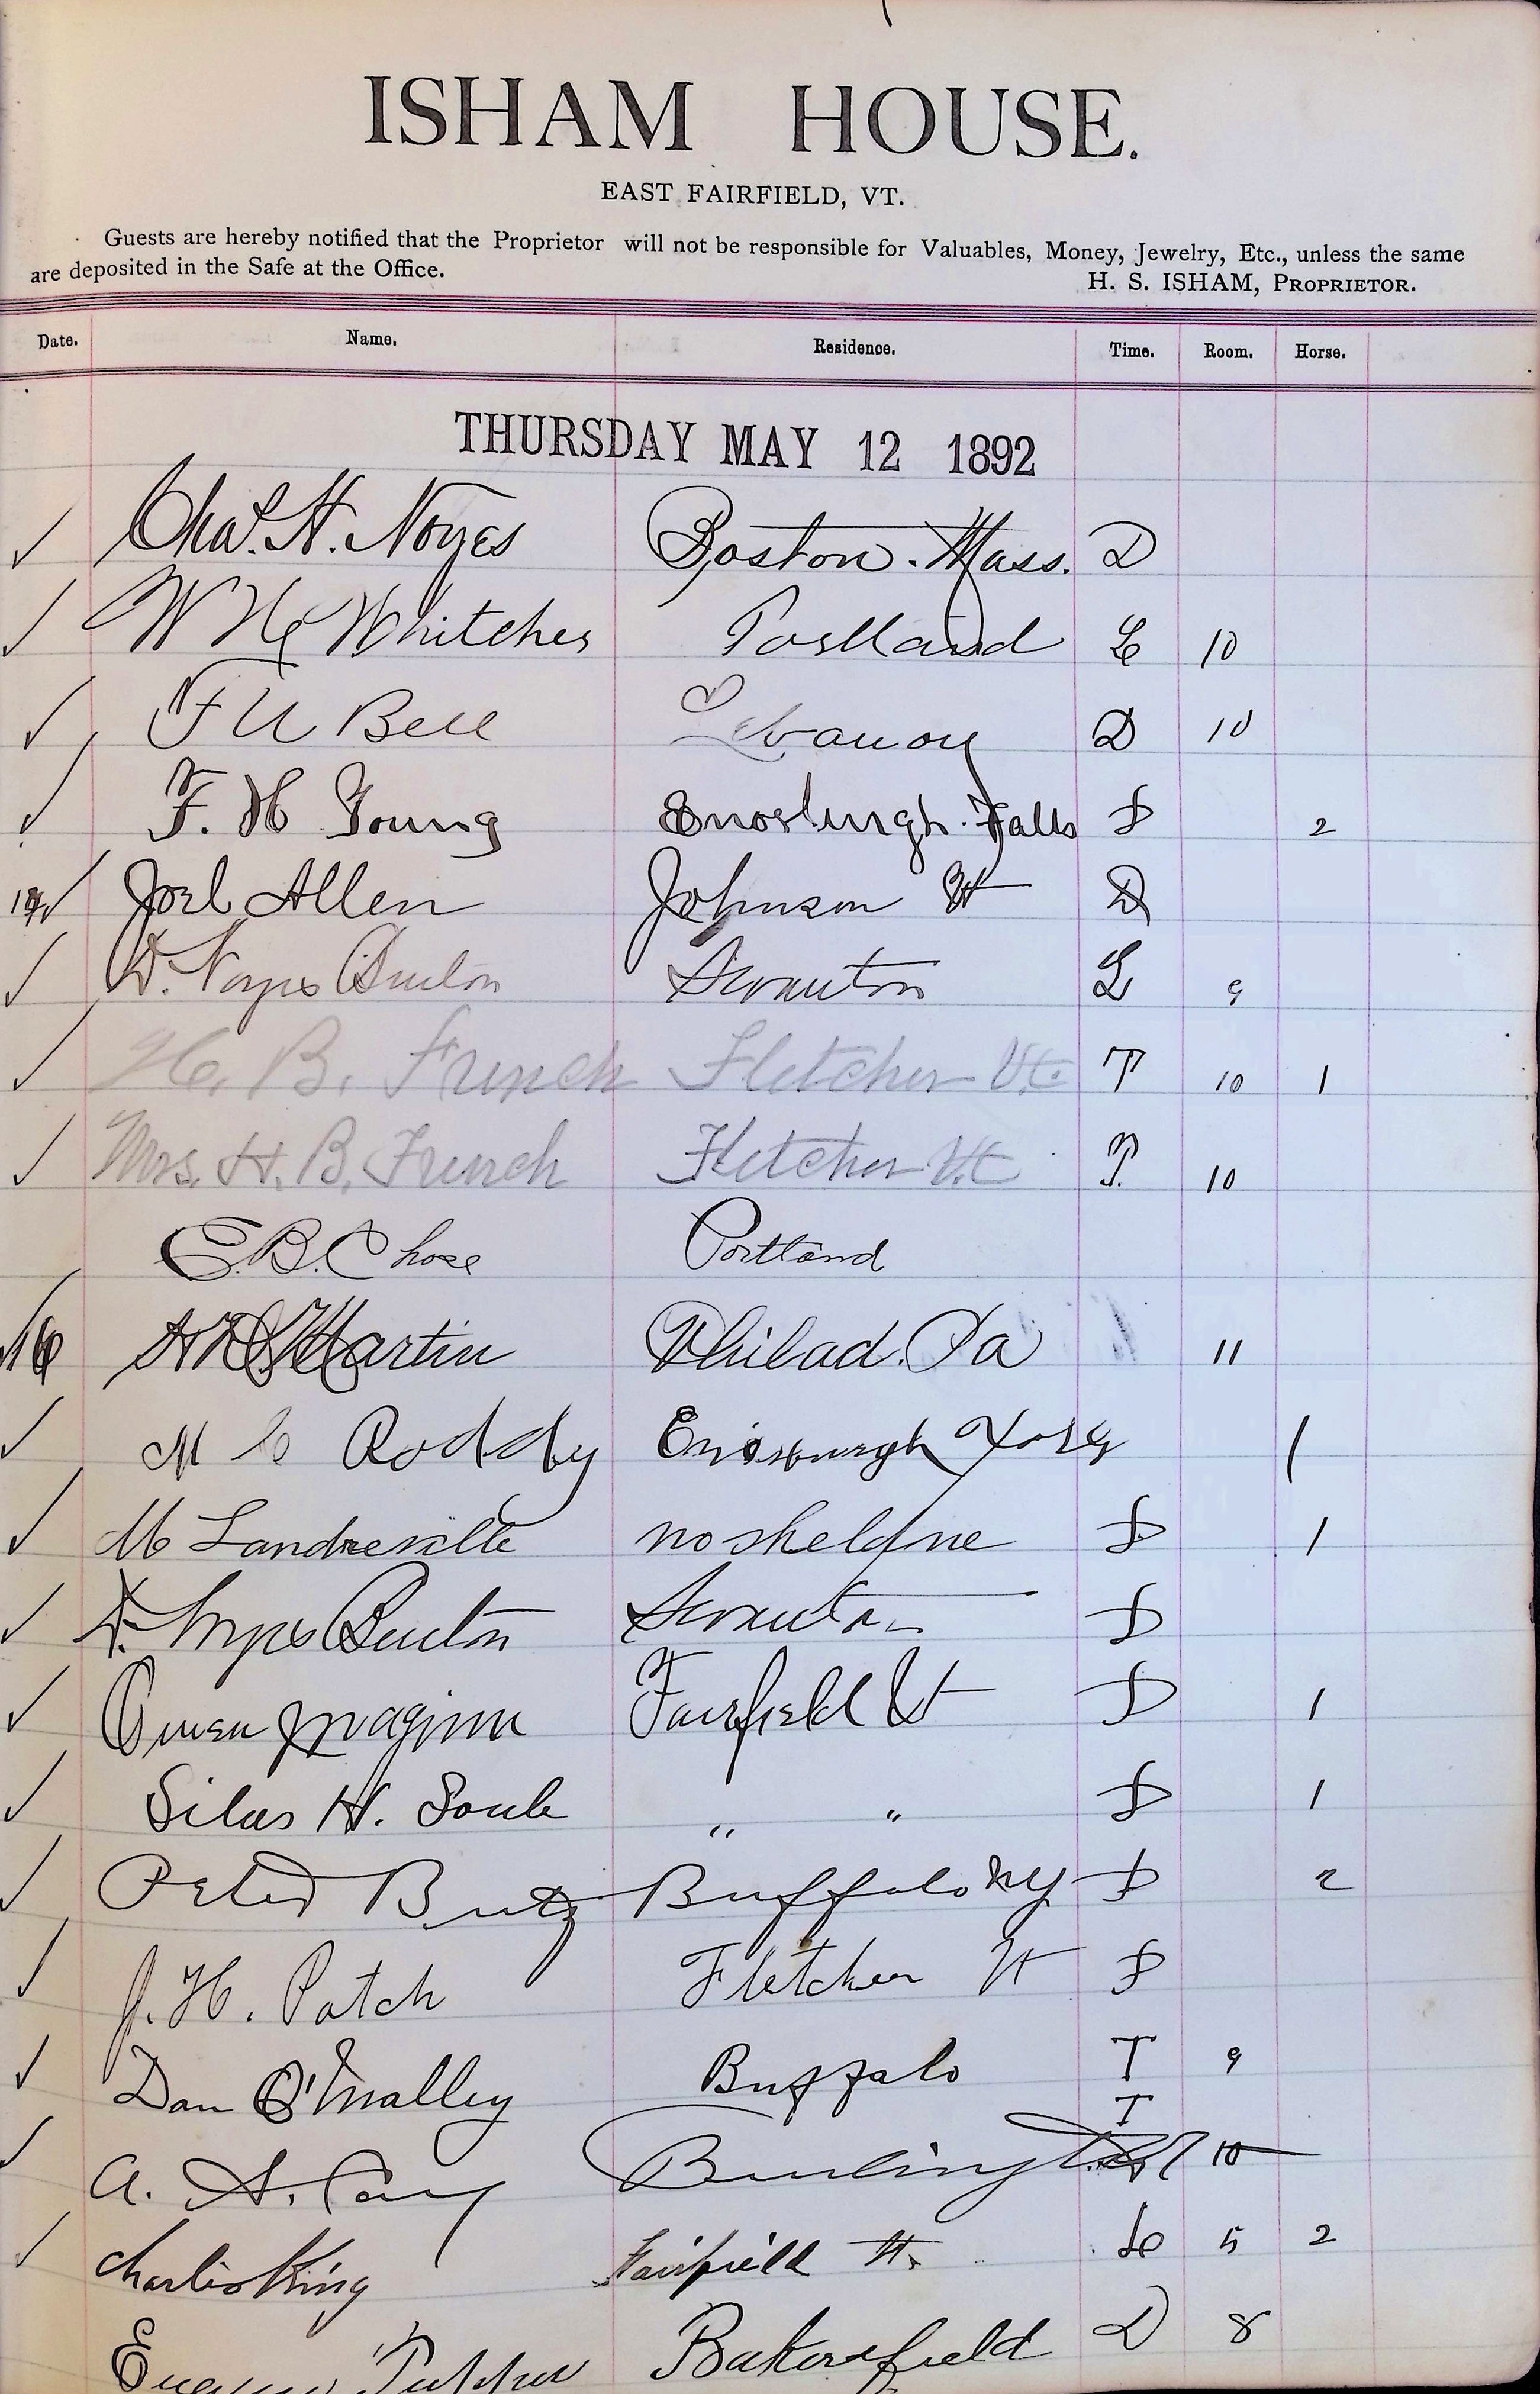 ISHAM HOUSE.
EAST FAIRFIELD, VT.
Guests are hereby notified that the Proprietor will not be responsible for Valuables, Money, Jewelry, Etc., unless the same
are deposited in the Safe at the Office.
H. S. ISHAM, PROPRIETOR.
Date. Name. Residence. Time. Room. Horse.
THURSDAY MAY 12 1892
Chas. H. Noyes Boston. Mass. D
W H Whitcher Portland L 10
F U Bell D 10
F. H Young Enosburgh Falls D 2
Joel Allen Johnson Vt D
D. Noyes Burton Scranton L 9
H. B. French Fletcher Vt. T 10 1
Mrs. H. B. French Fletcher Vt T. 10
E.B. Chase Portland
16 Martin Philad. Pa 11
M C Roddy Enosburgh 1
M Landreville no sheldne D 1
D. Noyes Burton Scranton D
Owen Maginn Fairfield Vt D 1
Silas H. Soule " " D 1
Peter Butz Buffalo NY D 2
J. H. Patch Fletcher Vt D
Dan O'Malley Buffalo T 9
A. A. Burlington T 10
Charlie King Fairfield Vt. L 5 2
Bakersfield D 8